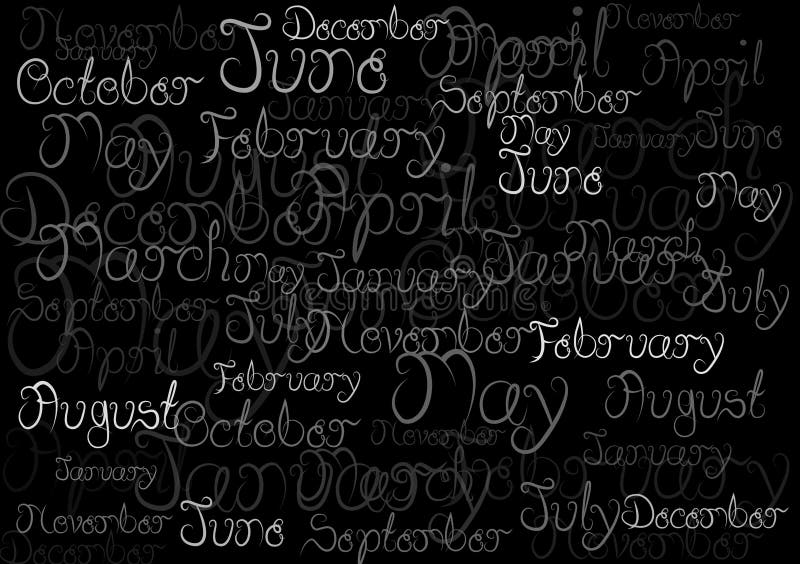 November
December
June
April
November
January
October
April
September
January
May
February
May
January
June
June
August
March
December
April
May
March
May
January
January
March
July
September
July
November
February
April
February
May
August
August
October
November
January
January
January
March
November
June
September
July
December
December
November